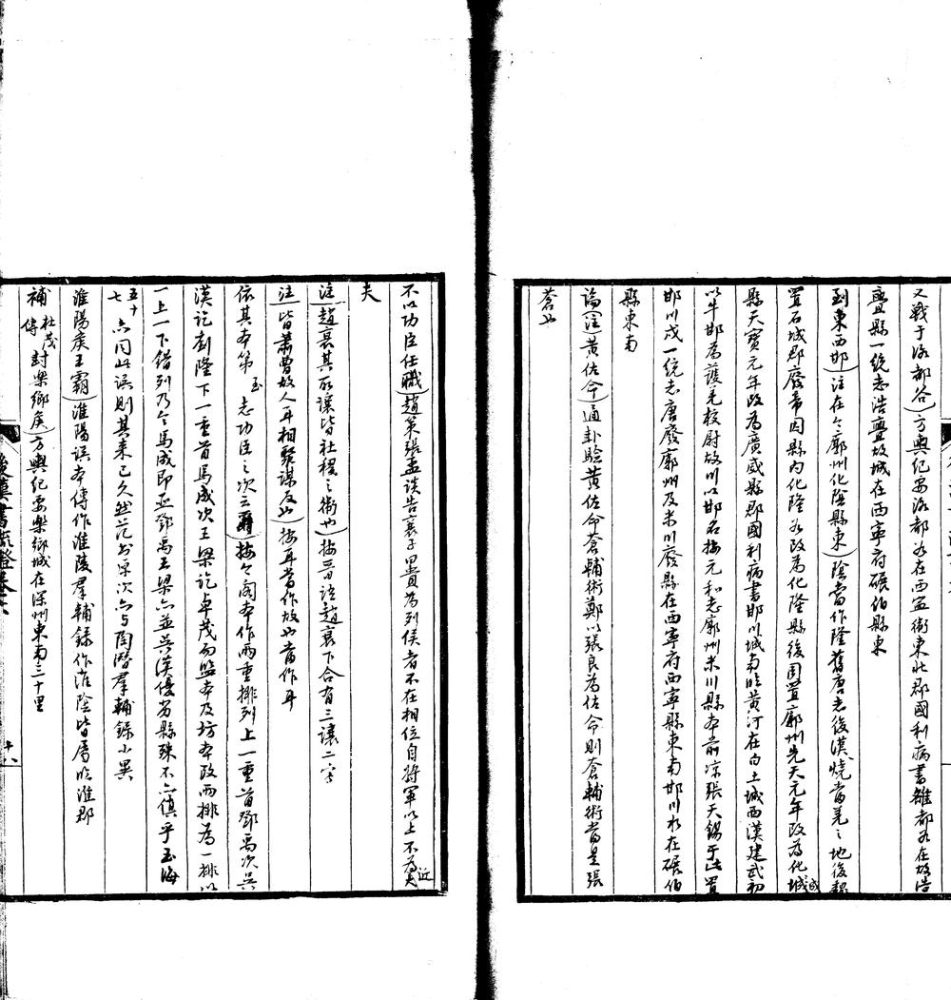 又戰于洛都谷）方輿紀要洛都水在西寧衛東北郡國利病書雒都水在故浩
亹縣一統志浩亹故城在西寧府碾伯縣東
到東西邯）注在今廓州化隆縣東）陰當作隆舊唐志後漢燒當羌之地後魏
置石城郡廢帝因縣內化隆谷改為化隆縣後周置廓州先天元年改為化成
縣天寶元年改為廣威縣郡國利病書邯川城南臨黃河在白土城西漢建武初
以牛邯為護羌校尉故川以邯名按元和志廓州米川縣本前涼張天錫于此置
邯川戍一統志唐廢廓州及米川廢縣在西寧府西寧縣東南邯川水在碾伯
縣東南
論（注）黃佐命）通卦驗黃佐命蒼輔術鄭以張良為佐命則蒼輔術當是張
蒼也
不以功臣任職）趙策張孟談告襄子曰貴為列侯者不在相位自將軍以上不為近
夫
注）趙衰其所讓皆社稷之衛也）按晉語趙衰下合有三讓二字
注）皆蕭曹故人耳相聚謀反也）按耳當作故也當作耳
依其本第 志功臣之次云爾）按今閣本作兩重排列上一重首鄧禹次吳
漢訖劉隆下一重首馬成次王梁訖卓茂而監本及坊本改兩排為一排以
一上一下錯列乃令馬成即亞鄧禹王梁亦並吳漢優劣縣殊不亦傎乎玉海
五十七亦同此誤則其來已久然范書草次亦与陶潛羣輔錄小異
淮陽侯王霸）淮陽誤本傳作淮陵羣輔錄作淮陰皆屬臨淮郡
補杜茂傳封樂鄉侯）方輿紀要樂鄉城在深州東南三十里
後漢書疏證卷六
十八